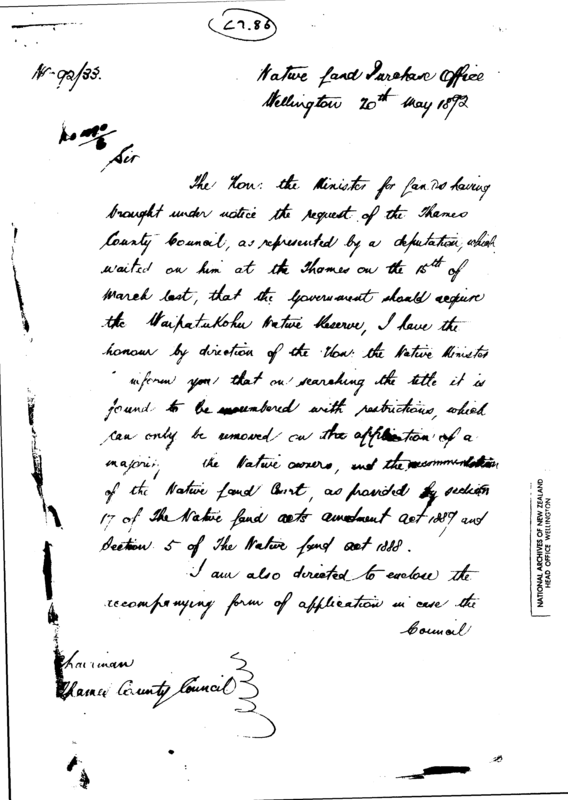 N. 92/33.
Native Land Purchase Office
Wellington 20th May 1892
Sir
The Hon: the Minister for Lands having
brought under notice the request of the Thames
County Council, as represented by a deputation, which
waited on him at the Thames on the 15th of
March last, that the Government should acquire
the Native Reserve, I have the
honour by direction of the Hon: the Native Minister
inform you that on searching the title it is
found to be encumbered with restrictions, which
can only be removed on the application of a
majority the Native owners, and the recommendation
of the Native Land Court, as provided by section
17 of The Native Land acts amendment act 1889 and
Section 5 of The Native Land act 1888.
I am also directed to enclose the
accompanying form of application in case the
Council
Chairman
Thames County Council
NATIONAL ARCHIVES OF NEW ZEALAND
HEAD OFFICE WELLINGTON